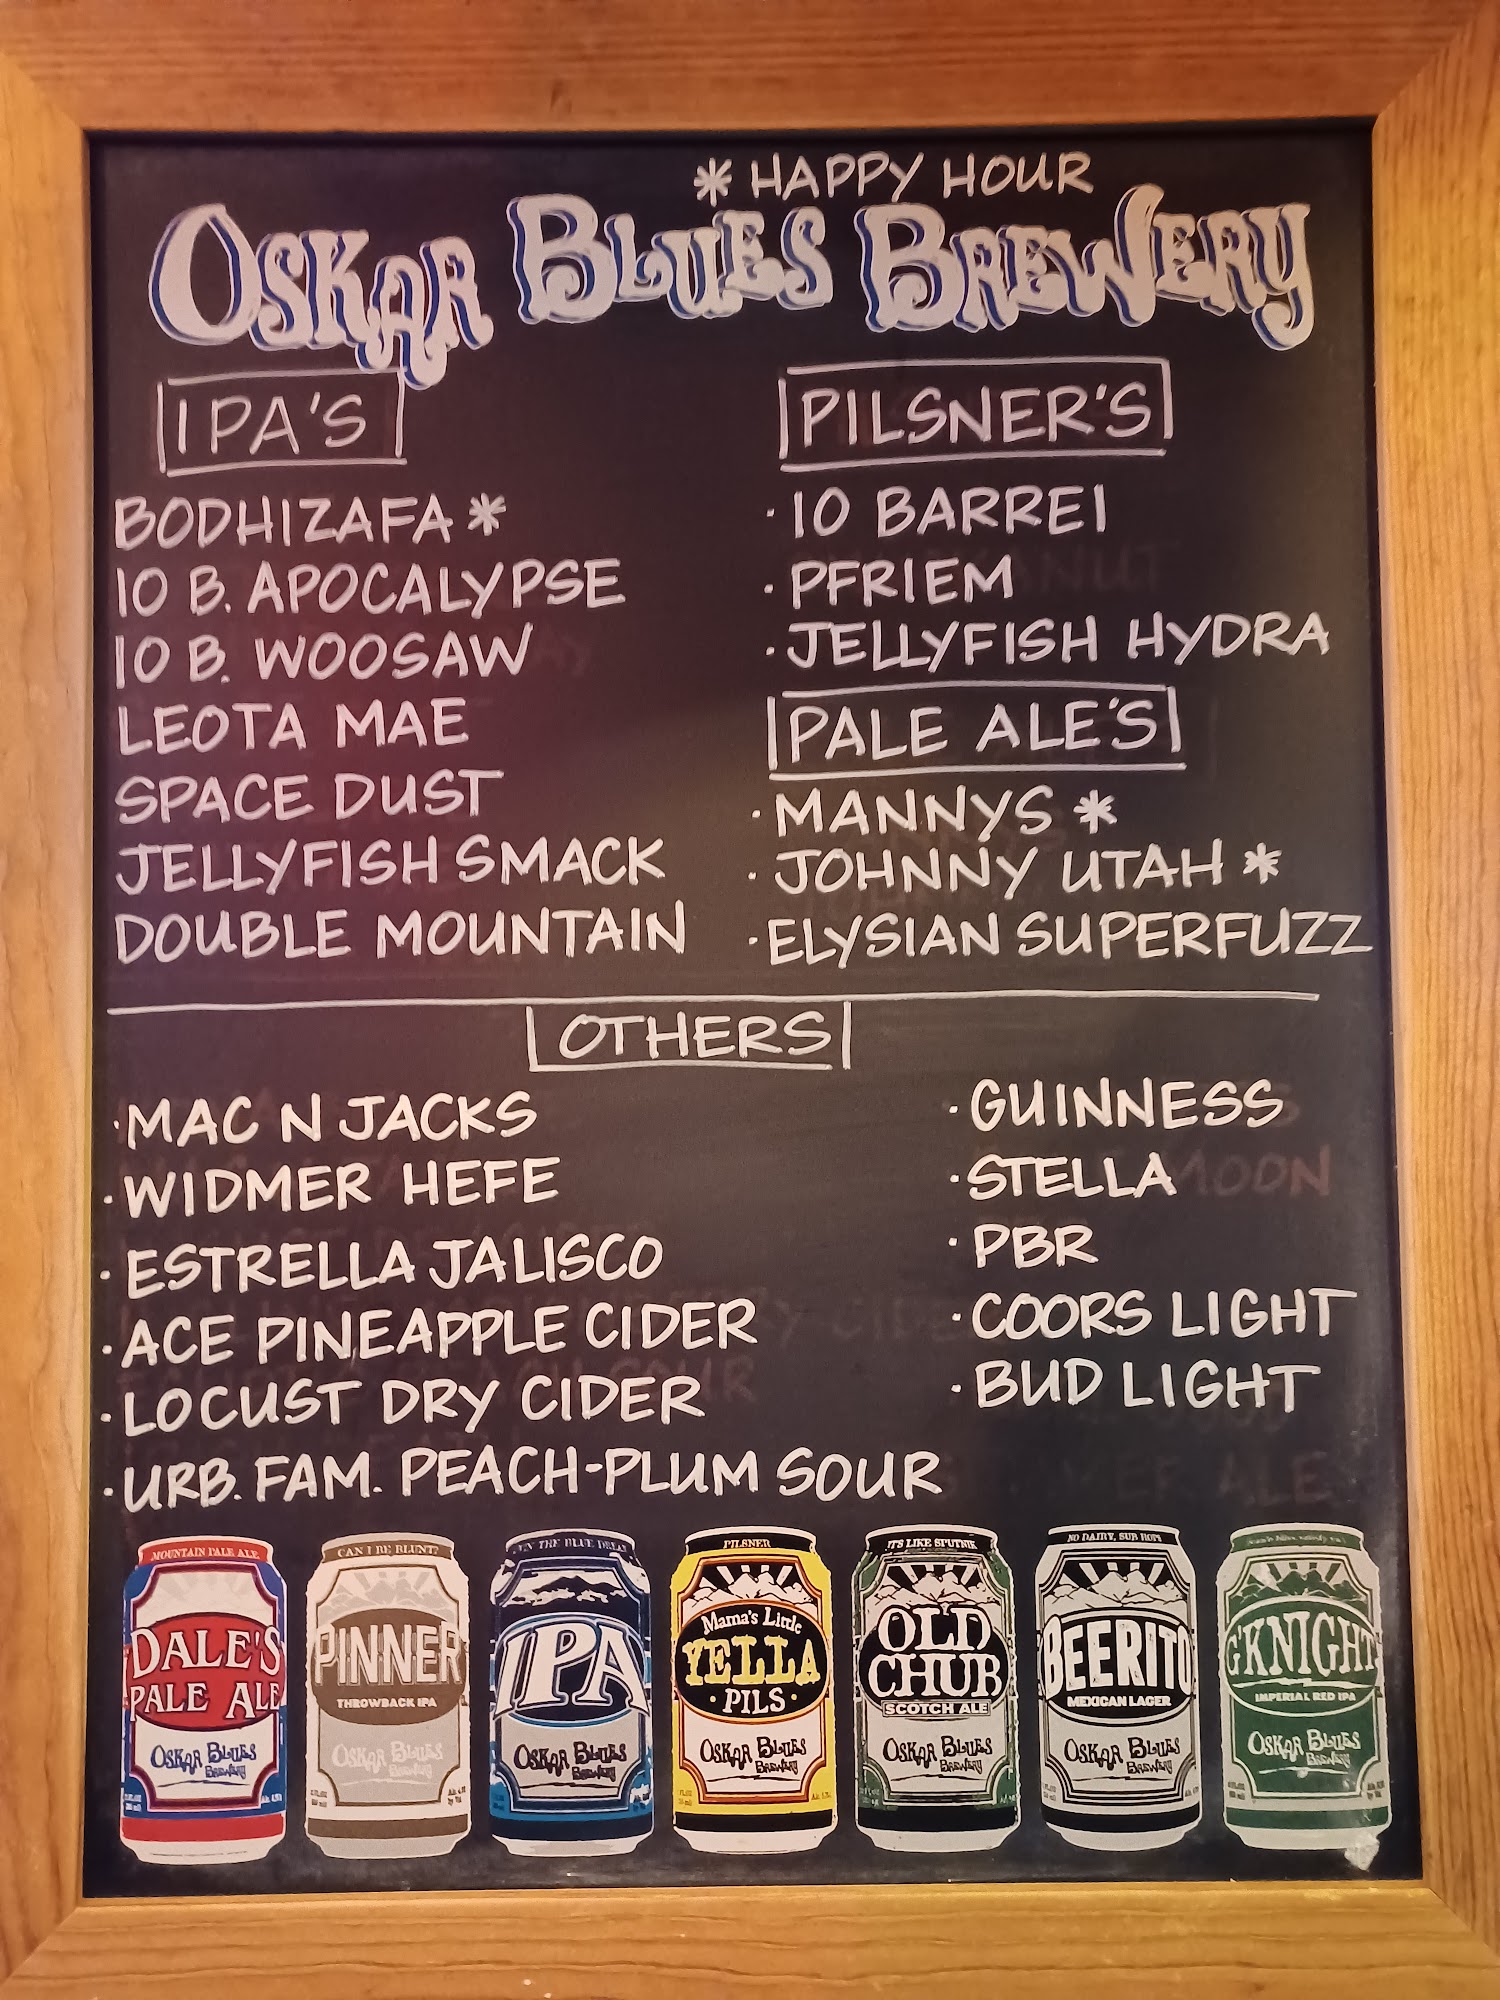 * HAPPY HOUR
OSKAR BLUES BREWERY
IPA'S
BODHIZAFA *
10 B. APOCALYPSE
10 B. WOOSAW
LEOTA MAE
SPACE DUST
JELLYFISH SMACK
DOUBLE MOUNTAIN
PILSNER'S
· 10 BARREL
· PFRIEM
· JELLYFISH HYDRA
PALE ALE'S
· MANNYS *
· JOHNNY UTAH *
· ELYSIAN SUPERFUZZ
OTHERS
· MAC N JACKS
· WIDMER HEFE
· ESTRELLA JALISCO
· ACE PINEAPPLE CIDER
· LOCUST DRY CIDER
· URB. FAM. PEACH-PLUM SOUR
· GUINNESS
· STELLA
· PBR
· COORS LIGHT
· BUD LIGHT
MOUNTAIN PALE ALE
DALE'S
PALE ALE
OSKAR BLUES
BREWERY
CAN I BE BLUNT?
PINNER
THROWBACK IPA
OSKAR BLUES
BREWERY
THE BLUE
IPA
OSKAR BLUES
BREWERY
PILSNER
Mama's Little
YELLA
· PILS ·
OSKAR BLUES
BREWERY
IT'S LIKE SPUTNIK
OLD
CHUB
SCOTCH ALE
OSKAR BLUES
BREWERY
NO DAIRY, SUB HOPS
BEERITO
MEXICAN LAGER
OSKAR BLUES
BREWERY
G'KNIGHT
IMPERIAL RED IPA
OSKAR BLUES
BREWERY